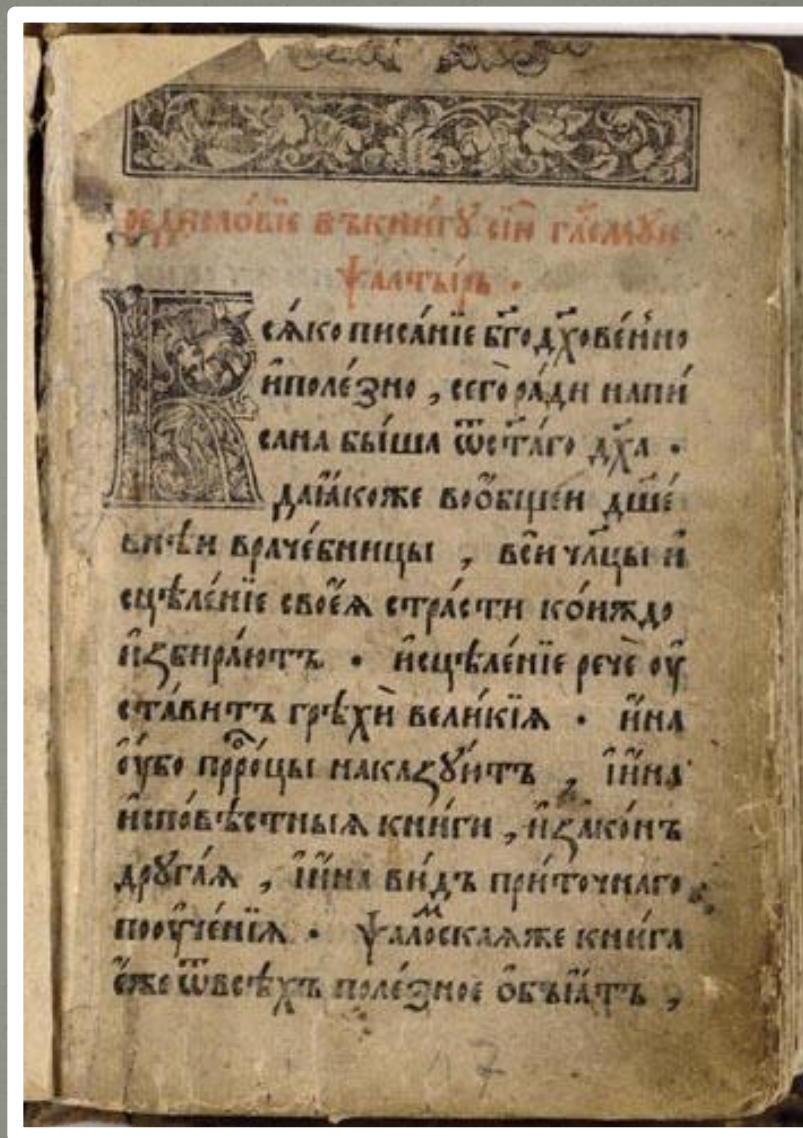 редисло́вїе въкни́гꙋ сїю̀ гл҃емꙋю
ѱалты́рь .
Вся́ко писа́нїе бг҃одх҃ове́нно
и҆поле́зно , сего̀ ра́ди напи́
сана бы́ша ѿст҃а́го дх҃а .
даꙗ҆́коже во ѻ҆́бщеи дш҃е́
внѣ́и враче́бницы , вси́ чл҃цы и҆
сцѣле́нїе своеѧ̀ стра́сти ко́иждо
и҆ꙁбира́ютъ . и҆сцѣле́нїе речѐ оу҆
ста́витъ грѣхѝ вели́кїѧ . и҆́на
оу҆́бо прⷪ҇ро́цы накаꙁꙋ́ютъ , і҆и҆́на
и҆спо́вѣстныѧ кни́ги , и҆ꙁако́нъ
дрꙋга́ѧ , і҆и҆́на ви́дъ при́точнаго
пооу҆че́нїѧ . ѱало́мⷭскаѧже кни́га
є҆́же ѿвсѣ́хъ поле́ꙁное ѻ҆бъꙗ́тъ ,
17